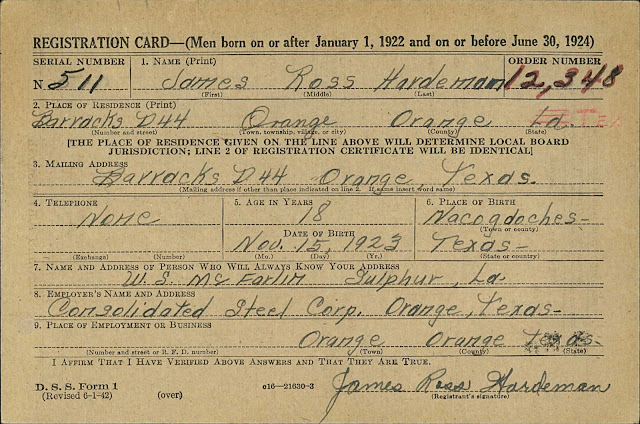 REGISTRATION CARD—(Men born on or after January 1, 1922 and on or before June 30, 1924)
SERIAL NUMBER 1. NAME (Print) ORDER NUMBER
N 511 James Ross Hardeman 12,348
(First) (Middle) (Last)
2. PLACE OF RESIDENCE (Print)
Barracks D44 Orange Orange La. Tex.
(Number and street) (Town, township, village, or city) (County) (State)
[THE PLACE OF RESIDENCE GIVEN ON THE LINE ABOVE WILL DETERMINE LOCAL BOARD
JURISDICTION; LINE 2 OF REGISTRATION CERTIFICATE WILL BE IDENTICAL]
3. MAILING ADDRESS
Barracks D44 Orange Texas.
(Mailing address if other than place indicated on line 2. If same insert word same)
4. TELEPHONE 5. AGE IN YEARS 6. PLACE OF BIRTH
None 18 Nacogdoches-
(Town or county)
DATE OF BIRTH
Nov. 15, 1923 Texas-
(Exchange) (Number) (Mo.) (Day) (Yr.) (State or country)
7. NAME AND ADDRESS OF PERSON WHO WILL ALWAYS KNOW YOUR ADDRESS
W. S. McFarlin Sulphur, La-
8. EMPLOYER'S NAME AND ADDRESS
Consolidated Steel Corp. Orange, Texas-
9. PLACE OF EMPLOYMENT OR BUSINESS
Orange Orange Texas-
(Number and street or R. F. D. number) (Town) (County) (State)
I AFFIRM THAT I HAVE VERIFIED ABOVE ANSWERS AND THAT THEY ARE TRUE.
D. S. S. Form 1
(Revised 6-1-42) (over) c16—21630-3 James Ross Hardeman
(Registrant's signature)